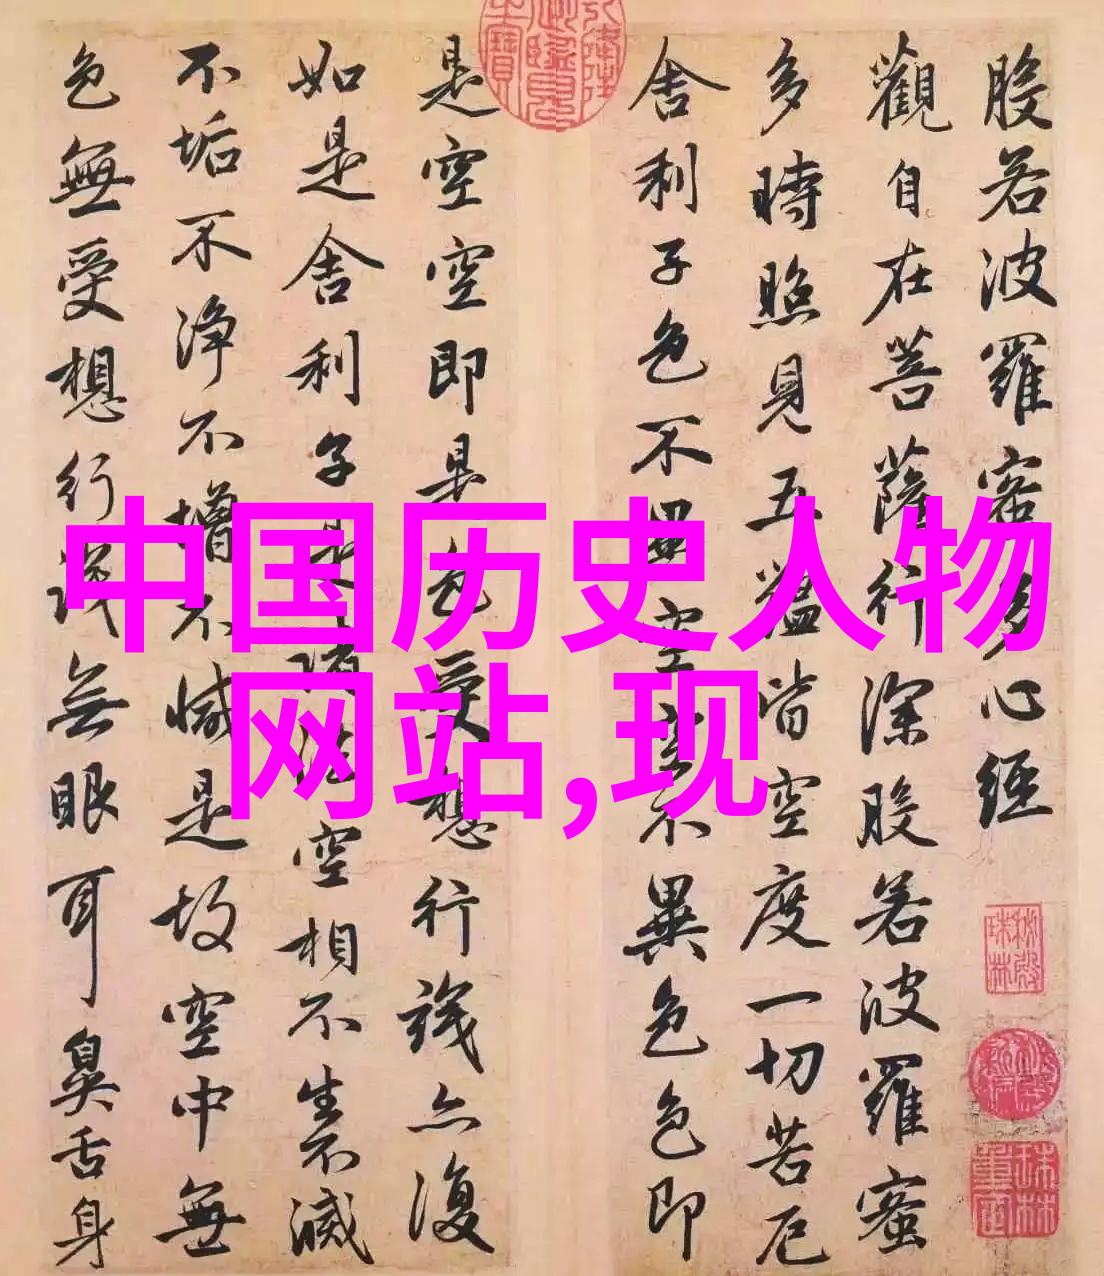 般若波羅蜜多心經
觀自在菩薩行深般若波羅蜜
多時照見五蘊皆空度一切苦厄
舍利子色不異空空不異色色即
是空空即是色受想行識亦復
如是舍利子是諸法空相不生不滅
不垢不净不增不減是故空中無
色無受想行識無眼耳鼻舌身
中国历史人物
网站,现
秘殿珠林